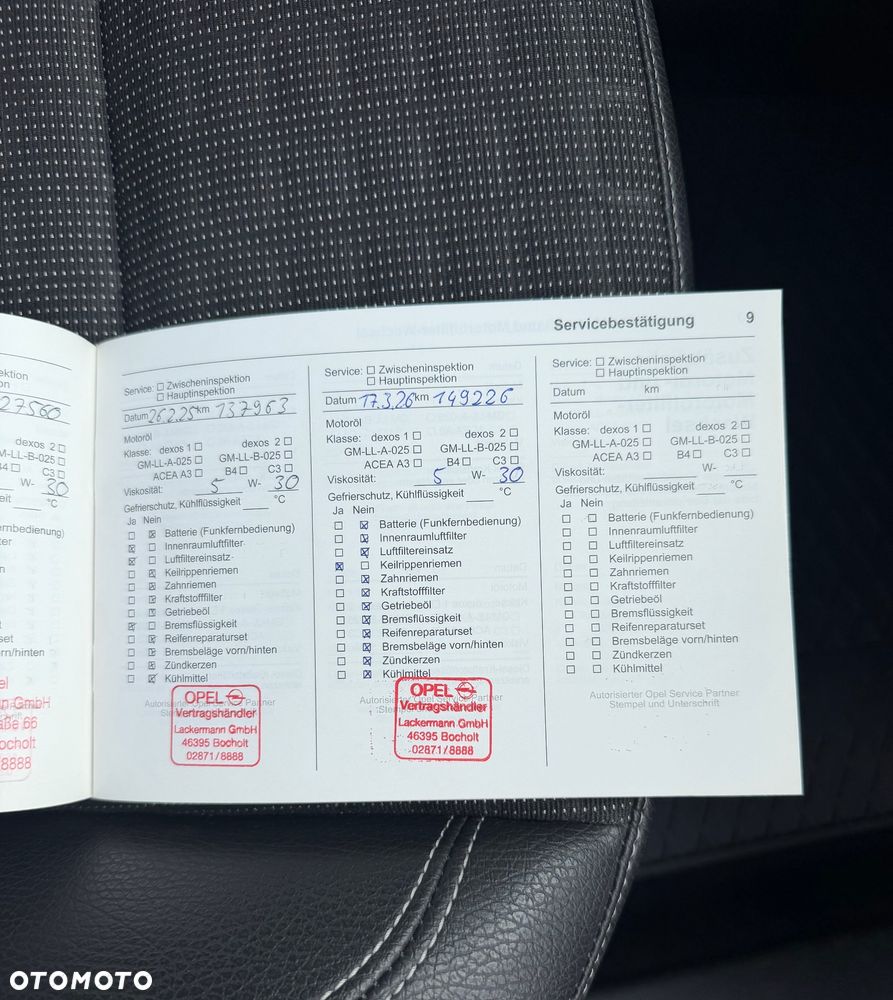 Servicebestätigung 9
ektion
on
27560
dexos 2
M-LL-B-025
B4 C3
W- 30
eit °C
rnbedienung)
ter
n
set
rn/hinten
el
n GmbH
aße 66
ocholt
8888
Service: Zwischeninspektion
Hauptinspektion
Datum 26.2.25 km 137963
Motoröl
Klasse: dexos 1 dexos 2
GM-LL-A-025 GM-LL-B-025
ACEA A3 B4 C3
Viskosität: 5 W- 30
Gefrierschutz, Kühlflüssigkeit °C
Ja Nein
Batterie (Funkfernbedienung)
Innenraumluftfilter
Luftfiltereinsatz
Keilrippenriemen
Zahnriemen
Kraftstofffilter
Getriebeöl
Bremsflüssigkeit
Reifenreparaturset
Bremsbeläge vorn/hinten
Zündkerzen
Kühlmittel
Autorisierter Opel Service Partner
OPEL
Vertragshändler
Lackermann GmbH
46395 Bocholt
02871/8888
Service: Zwischeninspektion
Hauptinspektion
Datum 17.3.26 km 149226
Motoröl
Klasse: dexos 1 dexos 2
GM-LL-A-025 GM-LL-B-025
ACEA A3 B4 C3
Viskosität: 5 W- 30
Gefrierschutz, Kühlflüssigkeit °C
Ja Nein
Batterie (Funkfernbedienung)
Innenraumluftfilter
Luftfiltereinsatz
Keilrippenriemen
Zahnriemen
Kraftstofffilter
Getriebeöl
Bremsflüssigkeit
Reifenreparaturset
Bremsbeläge vorn/hinten
Zündkerzen
Kühlmittel
Autorisierter Opel Service Partner
OPEL
Vertragshändler
Lackermann GmbH
46395 Bocholt
02871/8888
Service: Zwischeninspektion
Hauptinspektion
Datum km
Motoröl
Klasse: dexos 1 dexos 2
GM-LL-A-025 GM-LL-B-025
ACEA A3 B4 C3
Viskosität: W-
Gefrierschutz, Kühlflüssigkeit °C
Ja Nein
Batterie (Funkfernbedienung)
Innenraumluftfilter
Luftfiltereinsatz
Keilrippenriemen
Zahnriemen
Kraftstofffilter
Getriebeöl
Bremsflüssigkeit
Reifenreparaturset
Bremsbeläge vorn/hinten
Zündkerzen
Kühlmittel
Autorisierter Opel Service Partner
Stempel und Unterschrift
OTOMOTO